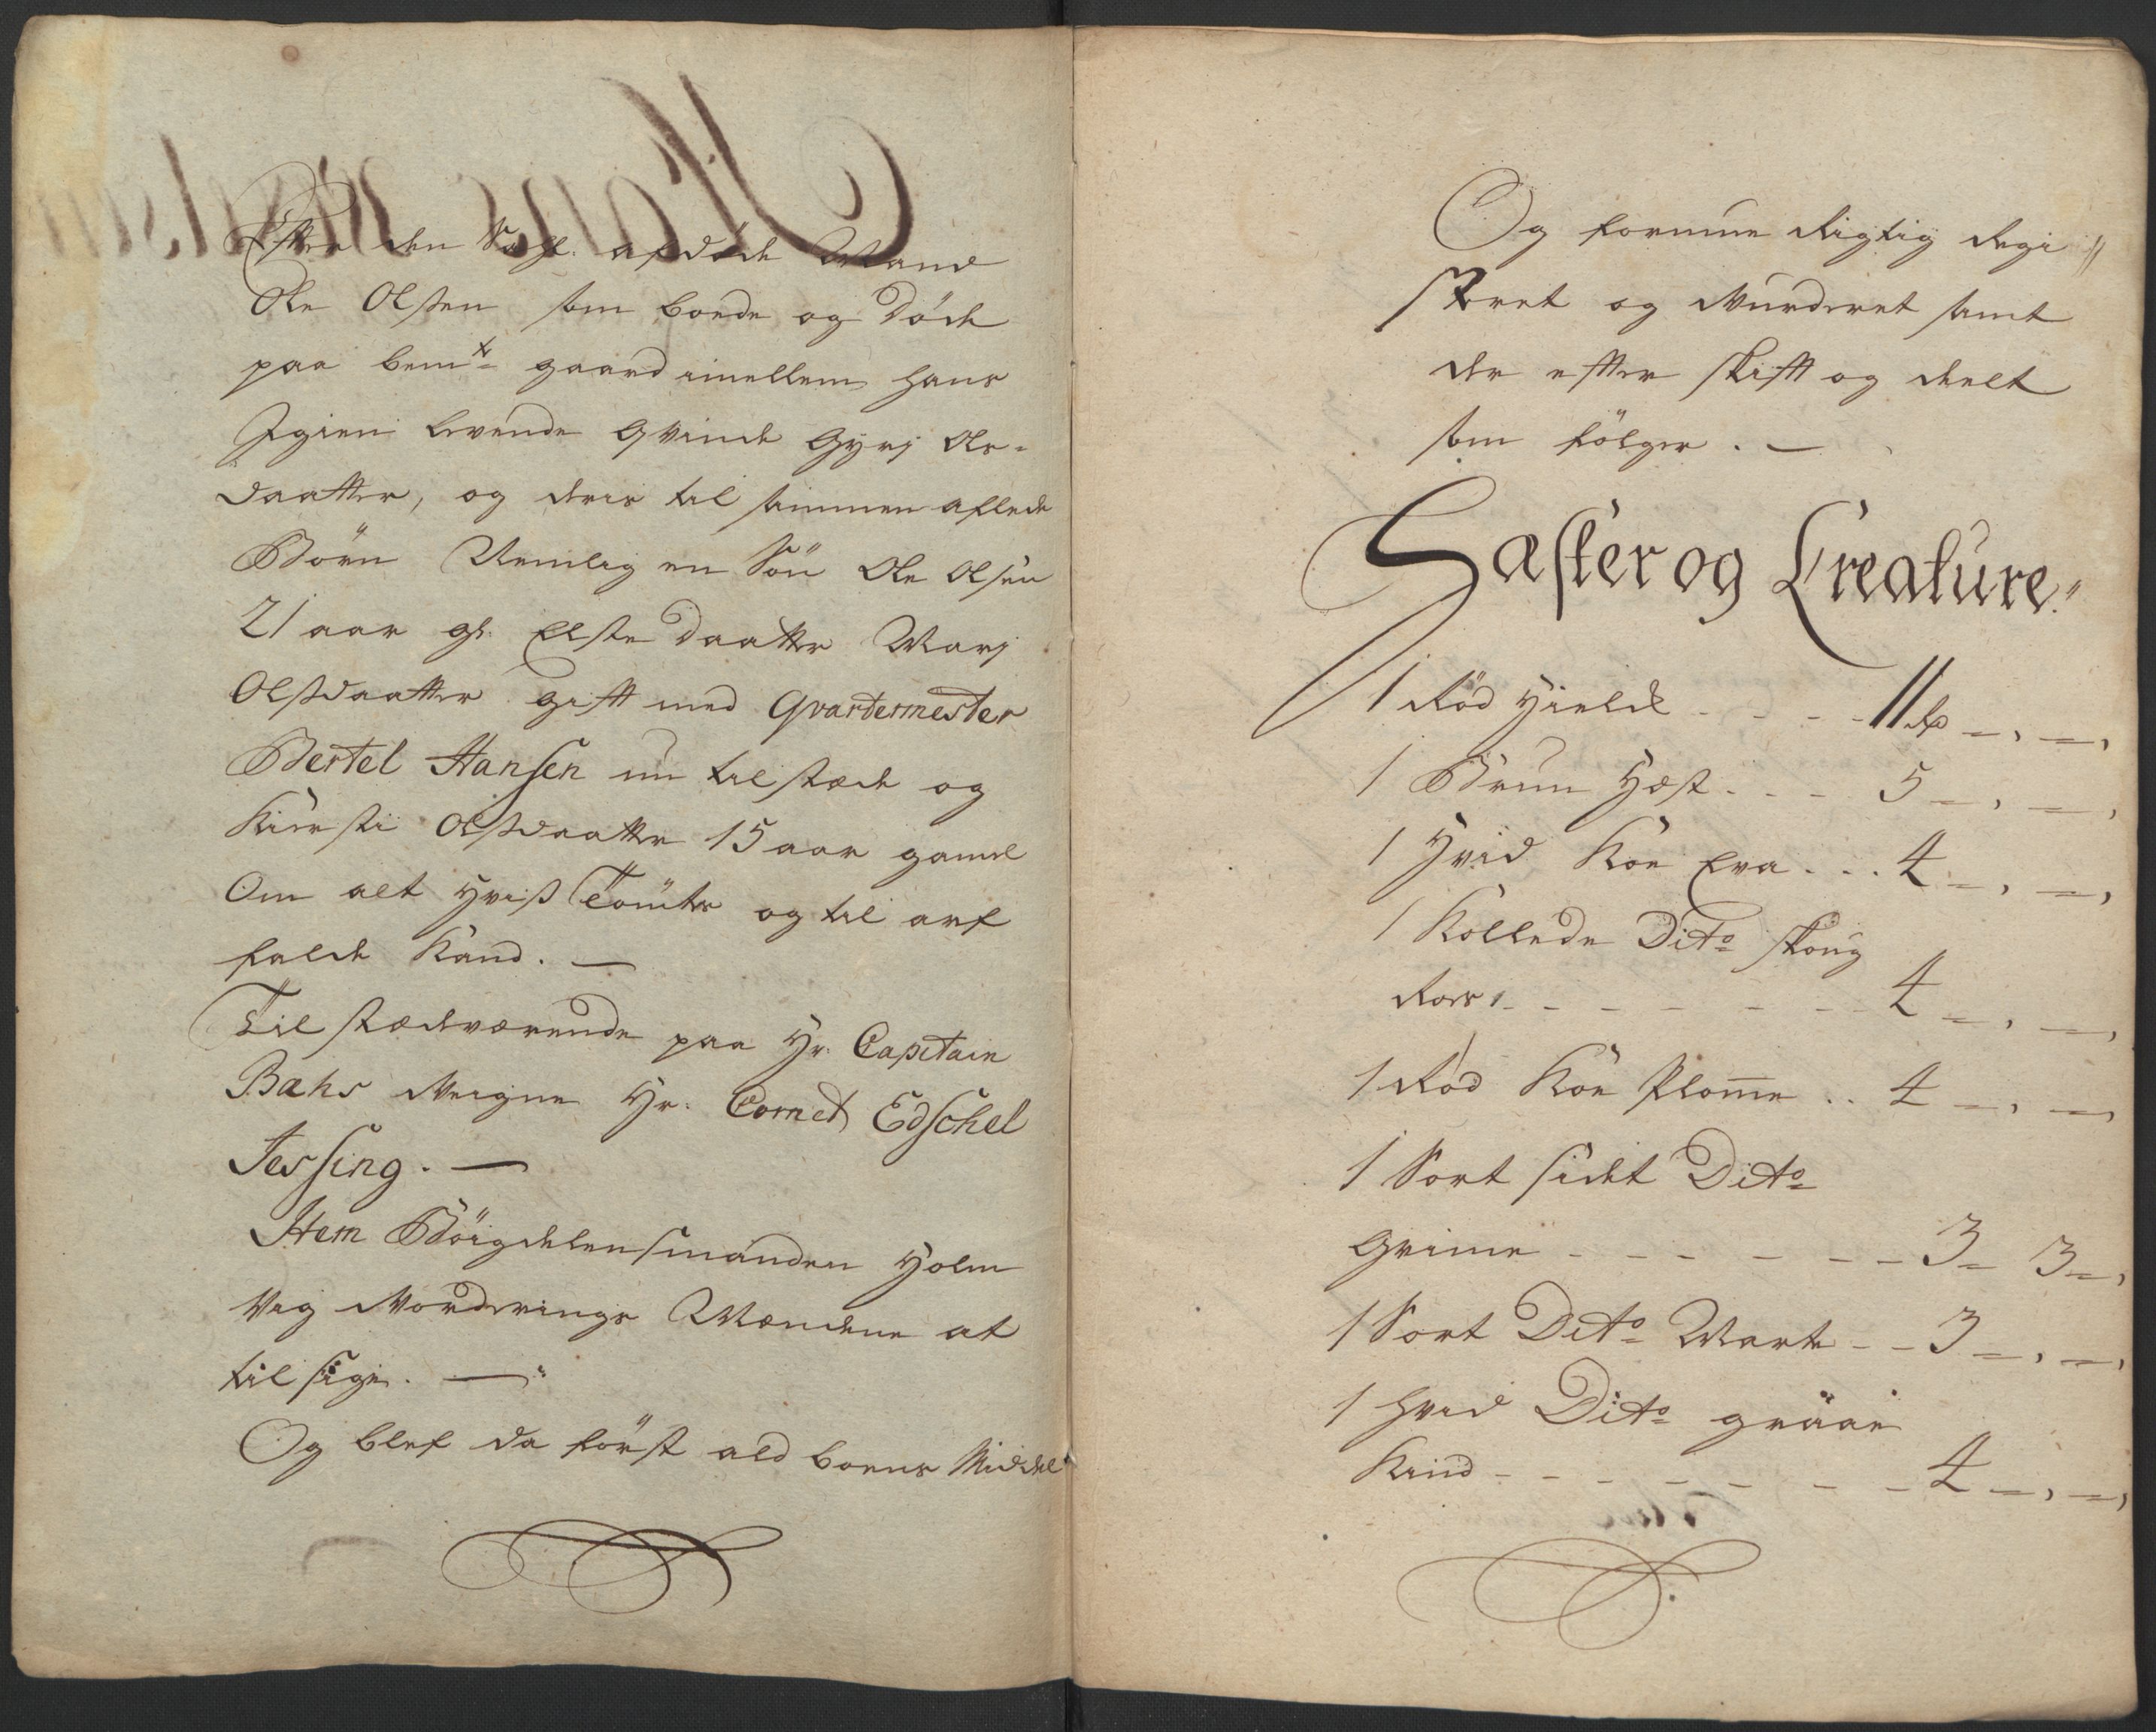 Efter den Sahl. afdöde Mand
Ole Olsen som boede og Döde
paa bemte gaard imellem hans
Igien levende Qvinde Gyri Ols-
daatter, og deris til sammen aflede
Börn Nemlig en Sön Ole Olsen
21 aar gl. Elste daatter Mari
Olsdaatter gift med Qvartermester
Bertel Hansen nu til stæde og
Kiersti Olsdaatter 15 aar gamel
Om alt hvis og til arf
falde kand. —
Til stædeværende paa Hr. Capitain
Bahs Veigne Hr. Cornet Edschel
Jessing. —
Item Böigdelensmanden Holm
Vig Vorderings Mændene at
til sige. —
Og blef da först ald boens Middel
Og formue Rigtig Regi
streret og Vurderet samt
der efter skift og deelt
som fölger. —
Hæster og Creature.
1 Röd Hielde - - - - 11 Rd — , — ,
1 Brun Hæst - - - 5 — , — ,
1 Hvid Koe Eva . . . 4 — , — ,
1 Kollede Dito skoug
Roes - - - - - - - 4 — , — ,
1 Röd Koe Plomme . . 4 — , — ,
1 Sort sidet Dito
Grime - - - - - - - 3 — 3 — ,
1 Sort Dito Mark - - 3 — , — ,
1 hvid Dito graae
Kind - - - - - - - - 4 — , — ,